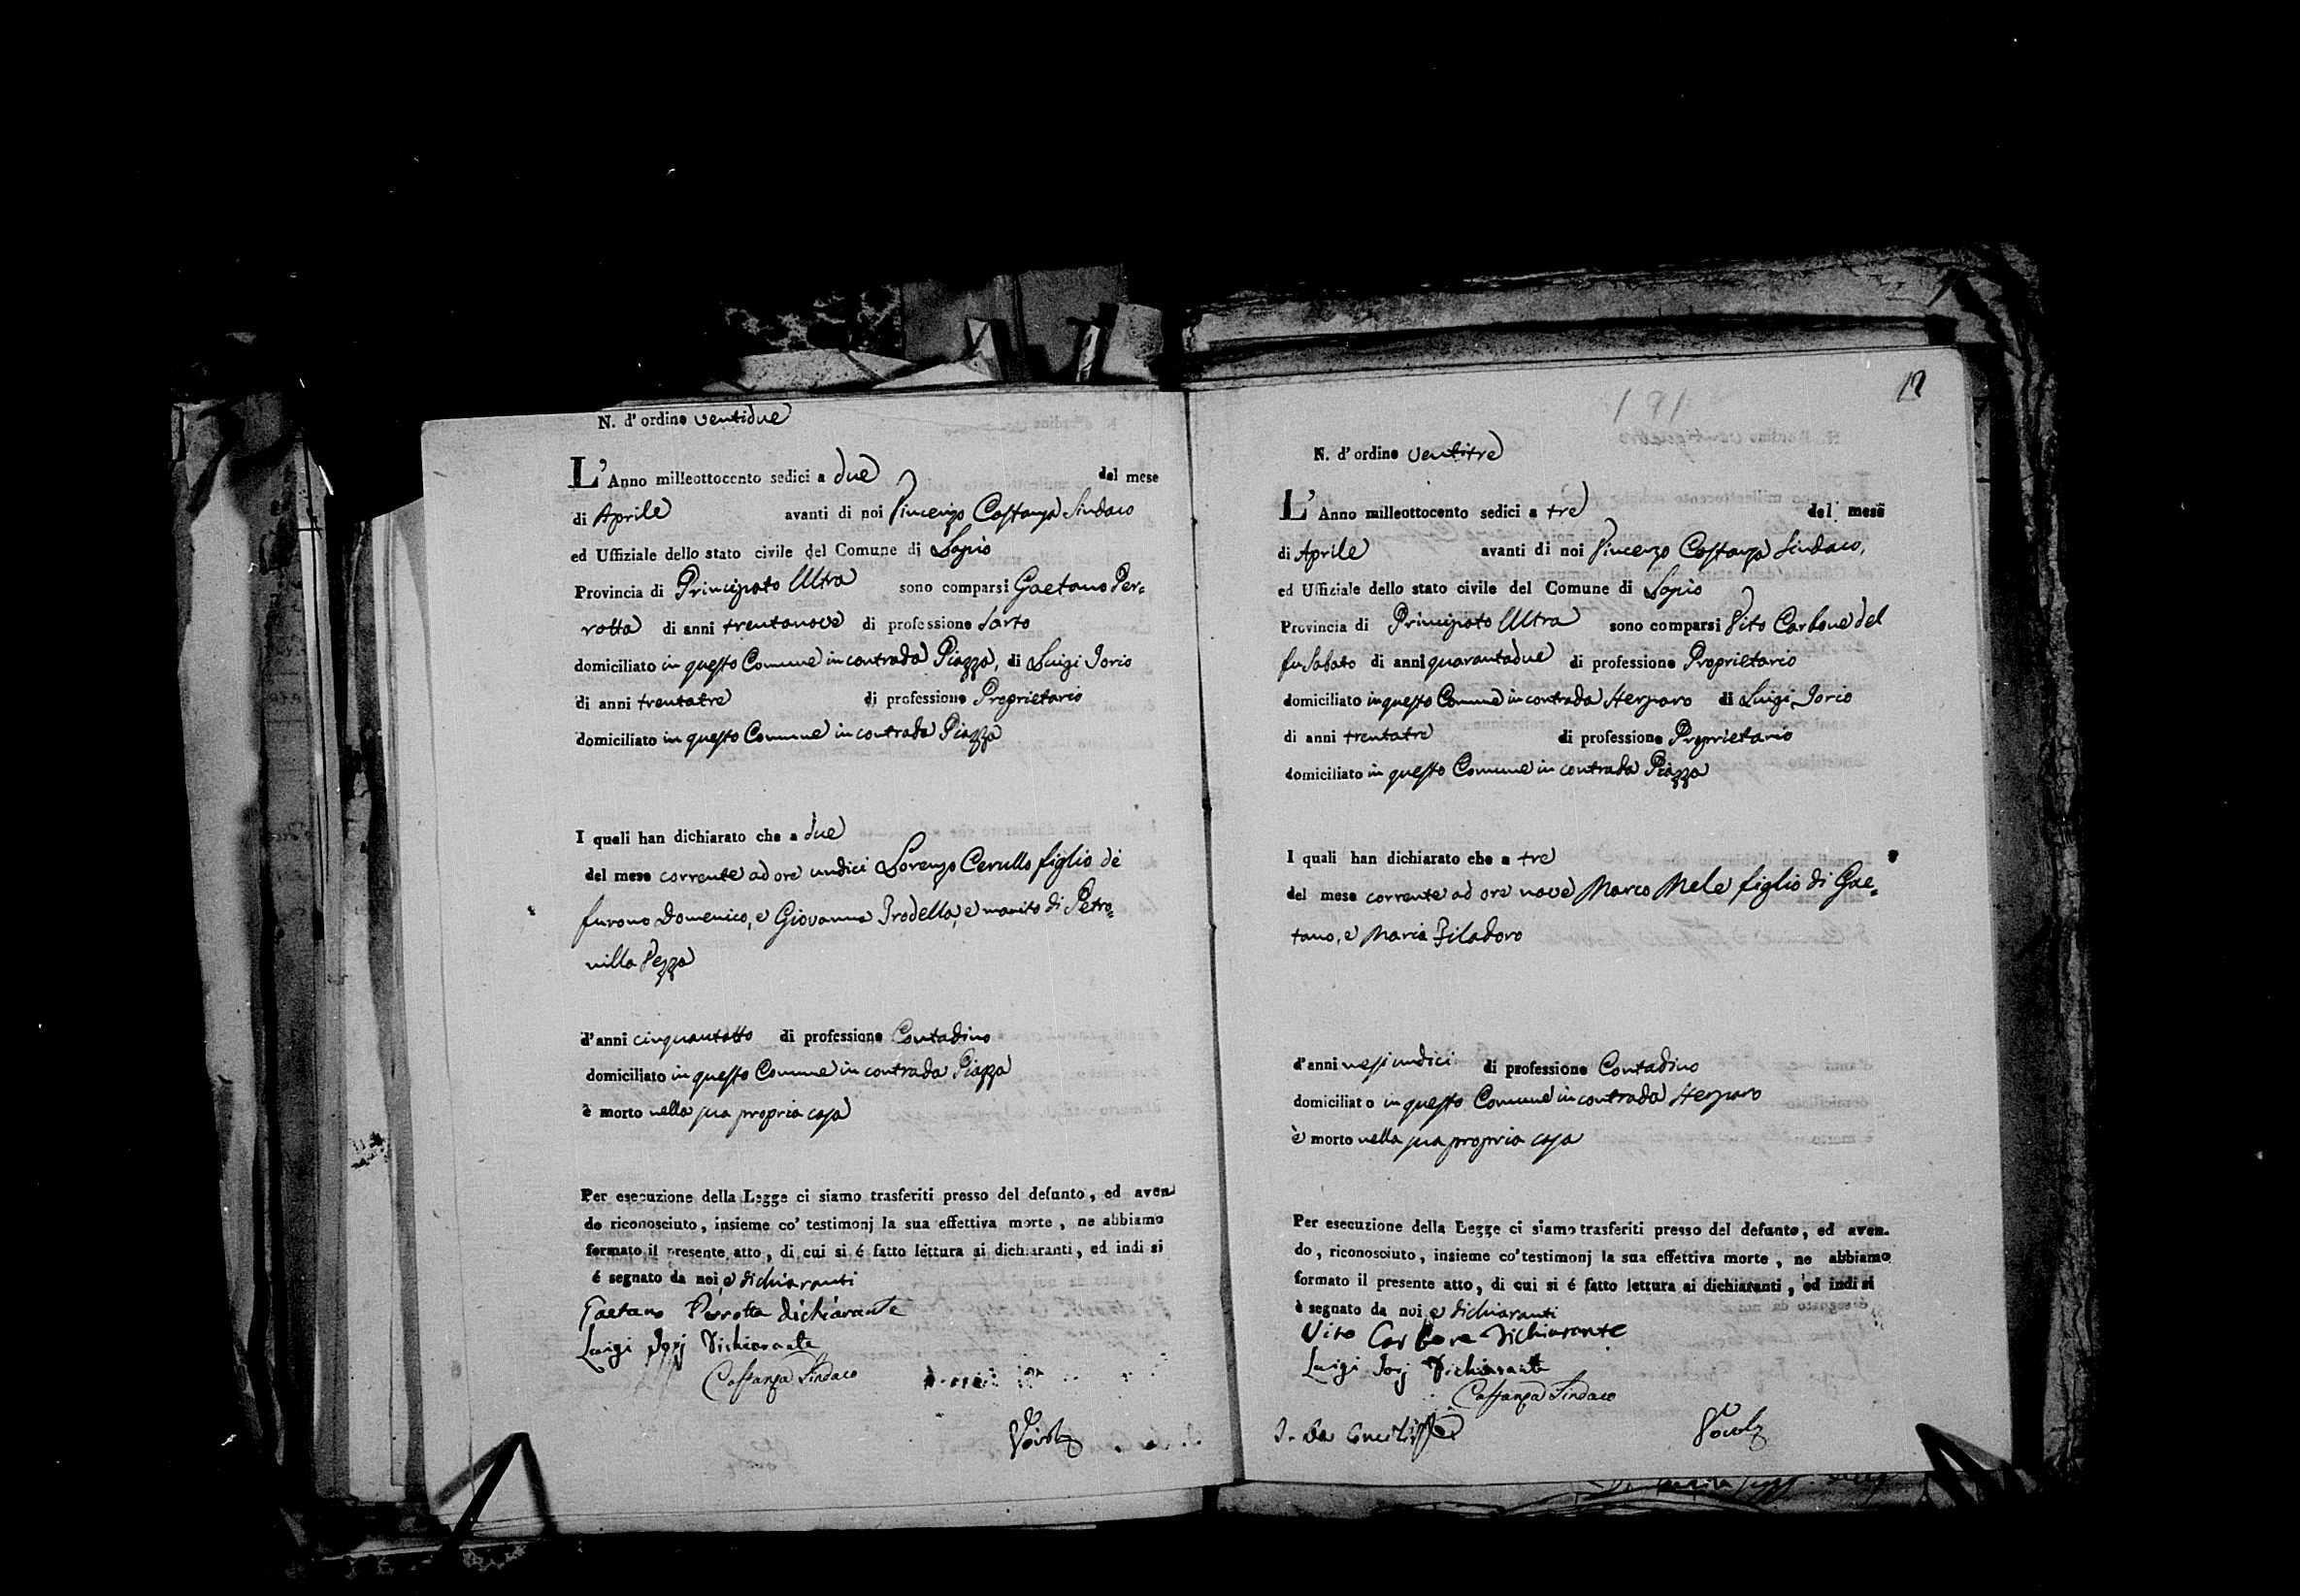 N. d'ordine ventidue
L'Anno milleottocento sedici a due del mese
di Aprile avanti di noi Vincenzo Costanza Sindaco
ed Uffiziale dello stato civile del Comune di Lapio
Provincia di Principato Ultra sono comparsi Gaetano Per=
rotta di anni trentanove di professione Sarto
domiciliato in questo Comune in contrada Piazza, di Luigi Jorio
di anni trentatre di professione Proprietario
domiciliato in questo Comune in contrada Piazza
I quali han dichiarato che a due
del mese corrente ad ore undici Lorenzo Cerullo figlio de
furono Domenico, e Giovanna Prodella, e marito di Petro=
nilla Pezza
d'anni cinquantotto di professione Contadino
domiciliato in questo Comune in contrada Piazza
è morto nella sua propria casa
Per esecuzione della Legge ci siamo trasferiti presso del defunto, ed aven
do riconosciuto, insieme co' testimonj la sua effettiva morte, ne abbiamo
formato il presente atto, di cui si é fatto lettura ai dichiaranti, ed indi si
é segnato da noi, e dichiaranti
Gaetano Perrotta dichiarante
Luigi Jorj Dichiarante
Costanza Sindaco
12
191
N. d'ordine ventitre
L'Anno milleottocento sedici a tre del mese
di Aprile avanti di noi Vincenzo Costanza Sindaco,
ed Uffiziale dello stato civile del Comune di Lapio
Provincia di Principato Ultra sono comparsi Vito Carbone del
fu Sabato di anni quarantadue di professione Proprietario
domiciliato in questo Comune in contrada Sterparo di Luigi Jorio
di anni trentatre di professione Proprietario
domiciliato in questo Comune in contrada Piazza
I quali han dichiarato che a tre
del mese corrente ad ore nove Marco Mele figlio di Gae=
tano, e Maria Filadoro
d'anni mesi undici di professione Contadino
domiciliato in questo Comune in contrada Sterparo
è morto nella sua propria casa
Per esecuzione della Legge ci siamo trasferiti presso del defunto, ed aven-
do, riconosciuto, insieme co' testimonj la sua effettiva morte, ne abbiamo
formato il presente atto, di cui si é fatto lettura ai dichiaranti, ed indi si
è segnato da noi, e dichiaranti
Vito Carbone Dichiarante
Luigi Jorj Dichiarante
Costanza Sindaco